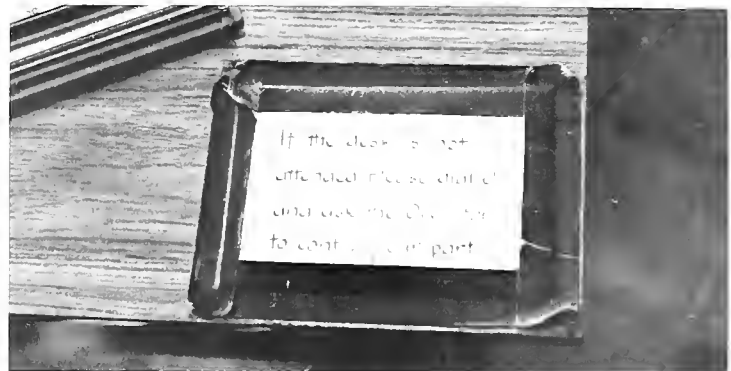 If the desk is not
attended please dial 0
and ask the Operator
to cont